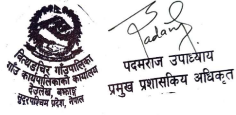 वित्थडचिर गाउँपालिका
गाउँ कार्यपालिकाको कार्यालय
देउलेख, बझाङ्ग
सुदूरपश्चिम प्रदेश, नेपाल
पदमराज उपाध्याय
प्रमुख प्रशासकिय अधिकृत